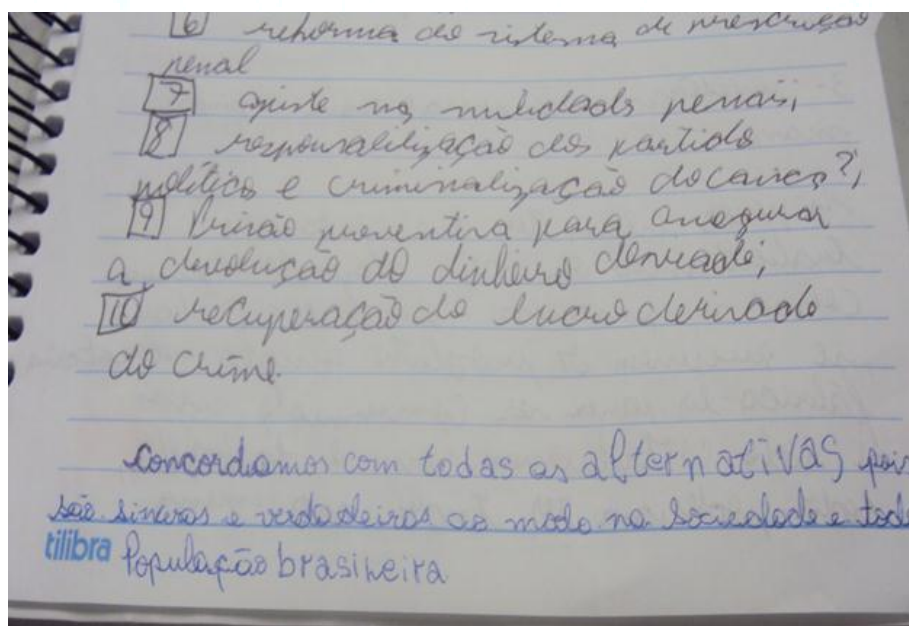 6 reforma do sistema de prescrição
penal
7 ajuste nas nulidades penais,
8 responsabilização dos partido
político e criminalização do caixa 2,
9 Prisão preventiva para assegurar
a devolução do dinheiro desviado;
10 recuperação do lucro derivado
do crime.
Concordamos com todas as alternativas pois
são sinceras e verdadeiras ao modo na sociedade e toda
tilibra População brasileira